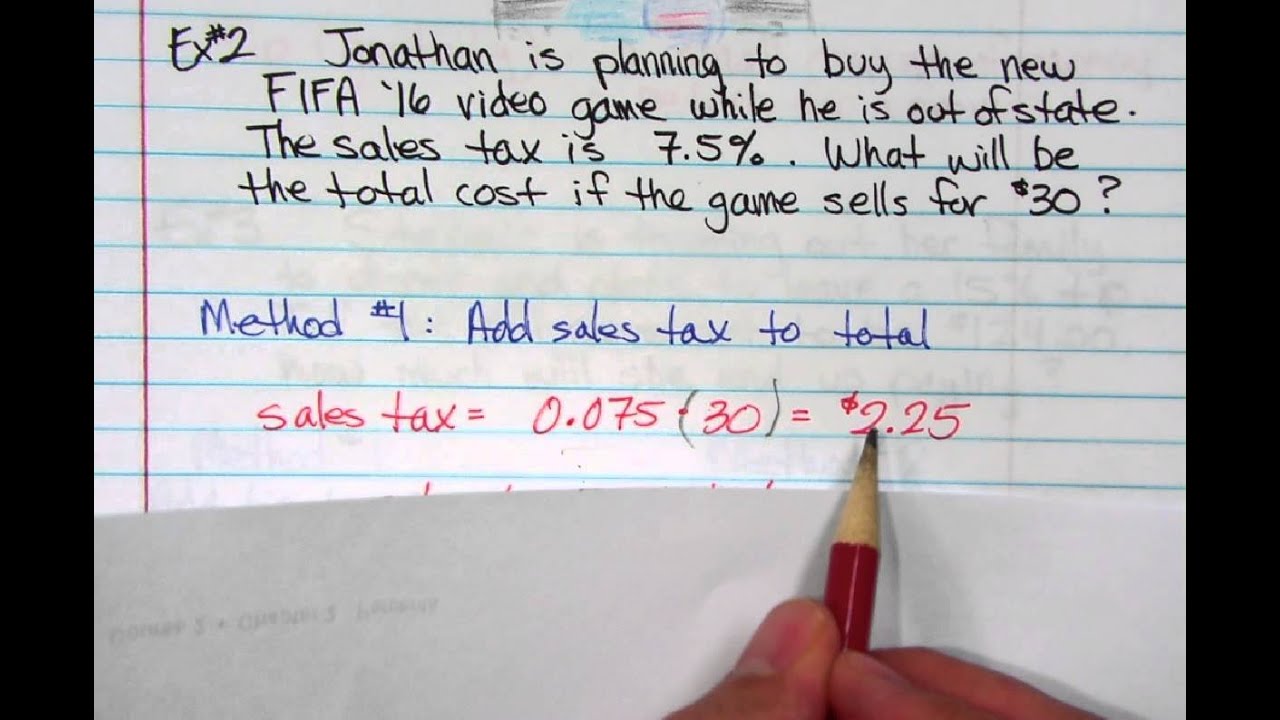 Ex#2 Jonathan is planning to buy the new
FIFA '16 video game while he is out of state.
The sales tax is 7.5%. What will be
the total cost if the game sells for $30?
Method #1: Add sales tax to total
sales tax = 0.075 · (30) = $2.25